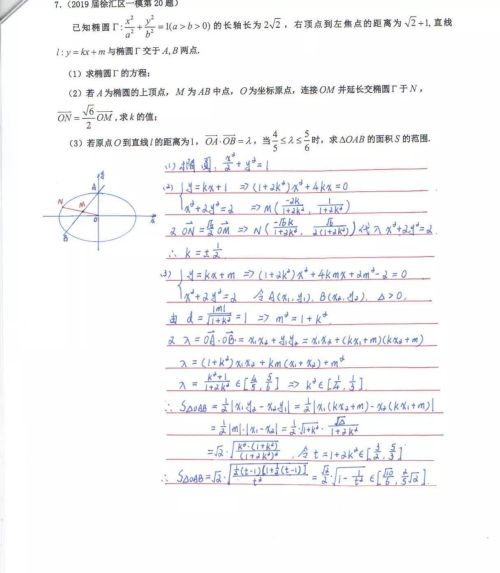 7.（2019 届徐汇区一模第 20 题）
已知椭圆 Γ: x²/a² + y²/b² = 1(a > b > 0) 的长轴长为 2√2，右顶点到左焦点的距离为 √2+1, 直线
l : y = kx + m 与椭圆 Γ 交于 A, B 两点.
（1）求椭圆 Γ 的方程；
（2）若 A 为椭圆的上顶点，M 为 AB 中点，O 为坐标原点，连接 OM 并延长交椭圆 Γ 于 N，
ON = √6/2 OM，求 k 的值；
（3）若原点 O 到直线 l 的距离为 1，OA·OB = λ，当 4/5 ≤ λ ≤ 5/6 时，求 △OAB 的面积 S 的范围.
(1) 椭圆: x²/2 + y² = 1
(2) { y = kx+1 ⇒ (1+2k²)x² + 4kx = 0
x²+2y² = 2 ⇒ M(-2k/(1+2k²), 1/(1+2k²))
又 ON = √6/2 OM ⇒ N(-√6k/(1+2k²), √6/(2(1+2k²))) 代入 x²+2y² = 2
∴ k = ± 1/2
3) { y = kx+m ⇒ (1+2k²)x² + 4kmx + 2m² - 2 = 0
x²+2y² = 2 令 A(x₁,y₁), B(x₂,y₂), △ > 0,
由 d = |m|/√(1+k²) = 1 ⇒ m² = 1+k²
又 λ = OA·OB = x₁x₂ + y₁y₂ = x₁x₂ + (kx₁+m)(kx₂+m)
λ = (1+k²)x₁x₂ + km(x₁+x₂) + m²
λ = (k²+1)/(1+2k²) ∈ [4/5, 5/6] ⇒ k² ∈ [1/4, 1/3]
∴ S△OAB = 1/2|x₁y₂ - x₂y₁| = 1/2|x₁(kx₂+m) - x₂(kx₁+m)|
= 1/2|m|·|x₁-x₂| = 1/2·√(1+k²)·√△/(1+2k²)
= √2·√(k²·(1+k²)/(1+2k²)²), 令 t = 1+2k² ∈ [3/2, 5/3]
∴ S△OAB = √2·√(1/2(t-1)[1+1/2(t-1)]/t²) = √2/2·√(1 - 1/t²) ∈ [√10/6, 2/5√2]
y
A
N
M
O
x
B